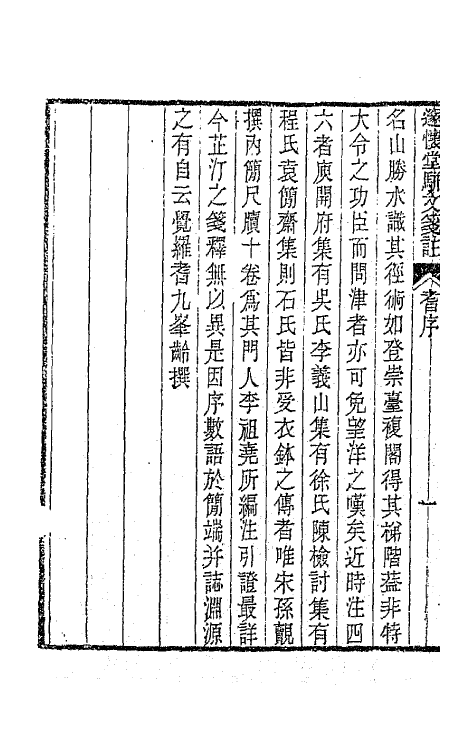 邃懷堂駢文箋註 耆序 一
名山勝水識其徑術如登崇臺複閣得其梯階葢非特
大令之功臣而問津者亦可免望洋之嘆矣近時注四
六者庾開府集有吳氏李義山集有徐氏陳檢討集有
程氏袁簡齋集則石氏皆非受衣鉢之傳者唯宋孫覿
撰內簡尺牘十卷爲其門人李祖堯所編注引證最詳
今芷汀之箋釋無以異是因序數語於簡端并誌淵源
之有自云覺羅耆九峯齡撰